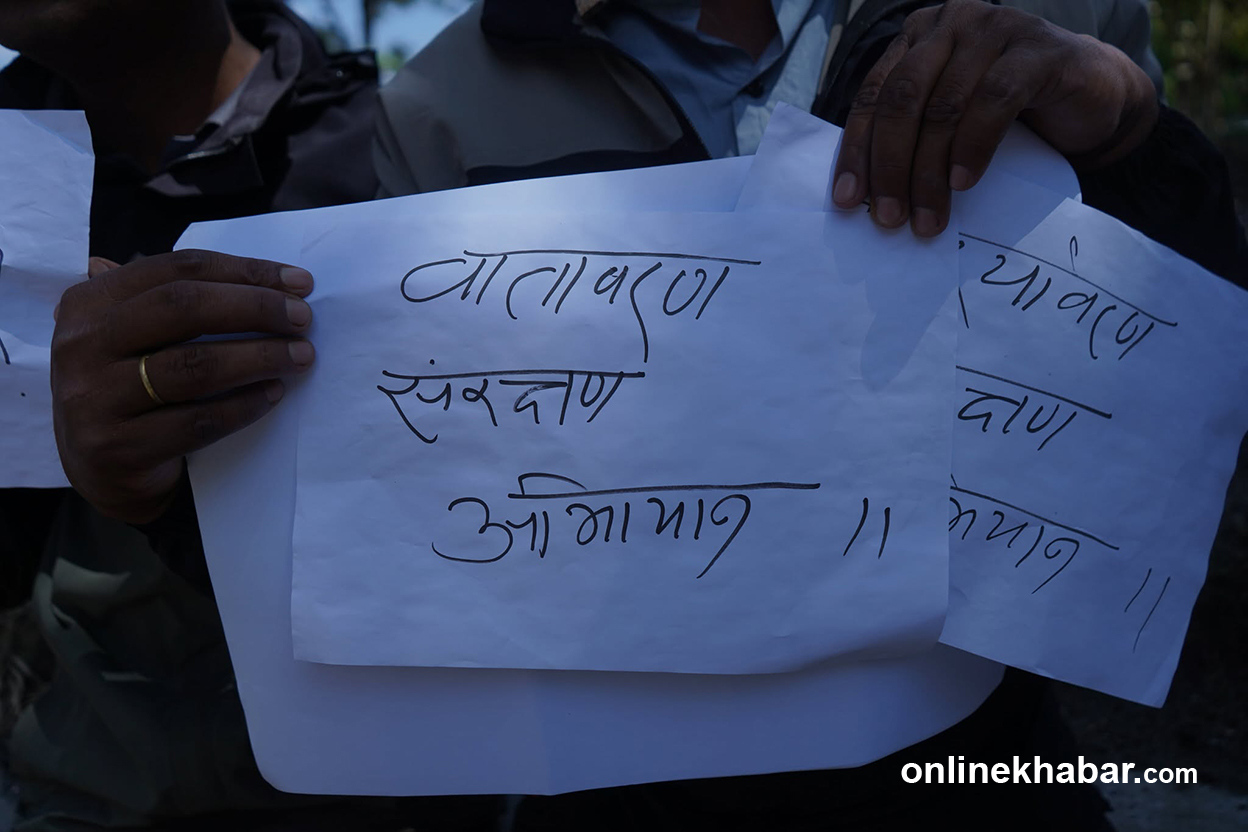 वातावरण
संरक्षण
अभियान ।।
र्यावरण
क्षण
भियान ।।
onlinekhabar.com